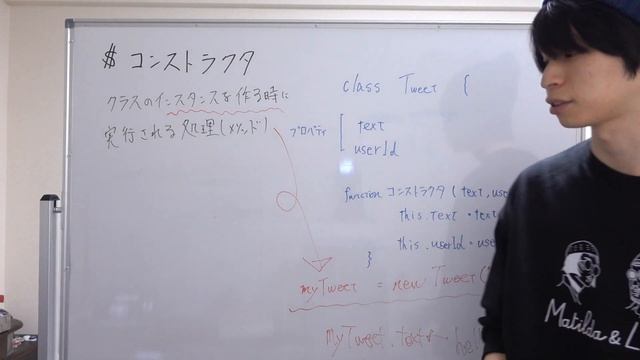 $ コンストラクタ
クラスのインスタンスを作る時に
実行される処理(メソッド)
class Tweet {
プロパティ
text
userId
function コンストラクタ ( text, use
this.text = text
this.userId = use
}
myTweet = new Tweet("
myTweet.text ← hel
Matilda & L